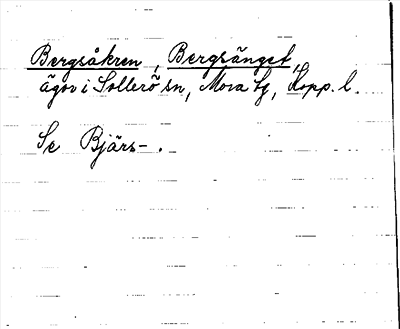 Bergsåkren, Bergsänget,
ägor i Sollerö sn, Mora tg, Kopp. l.
Se Bjärs- .